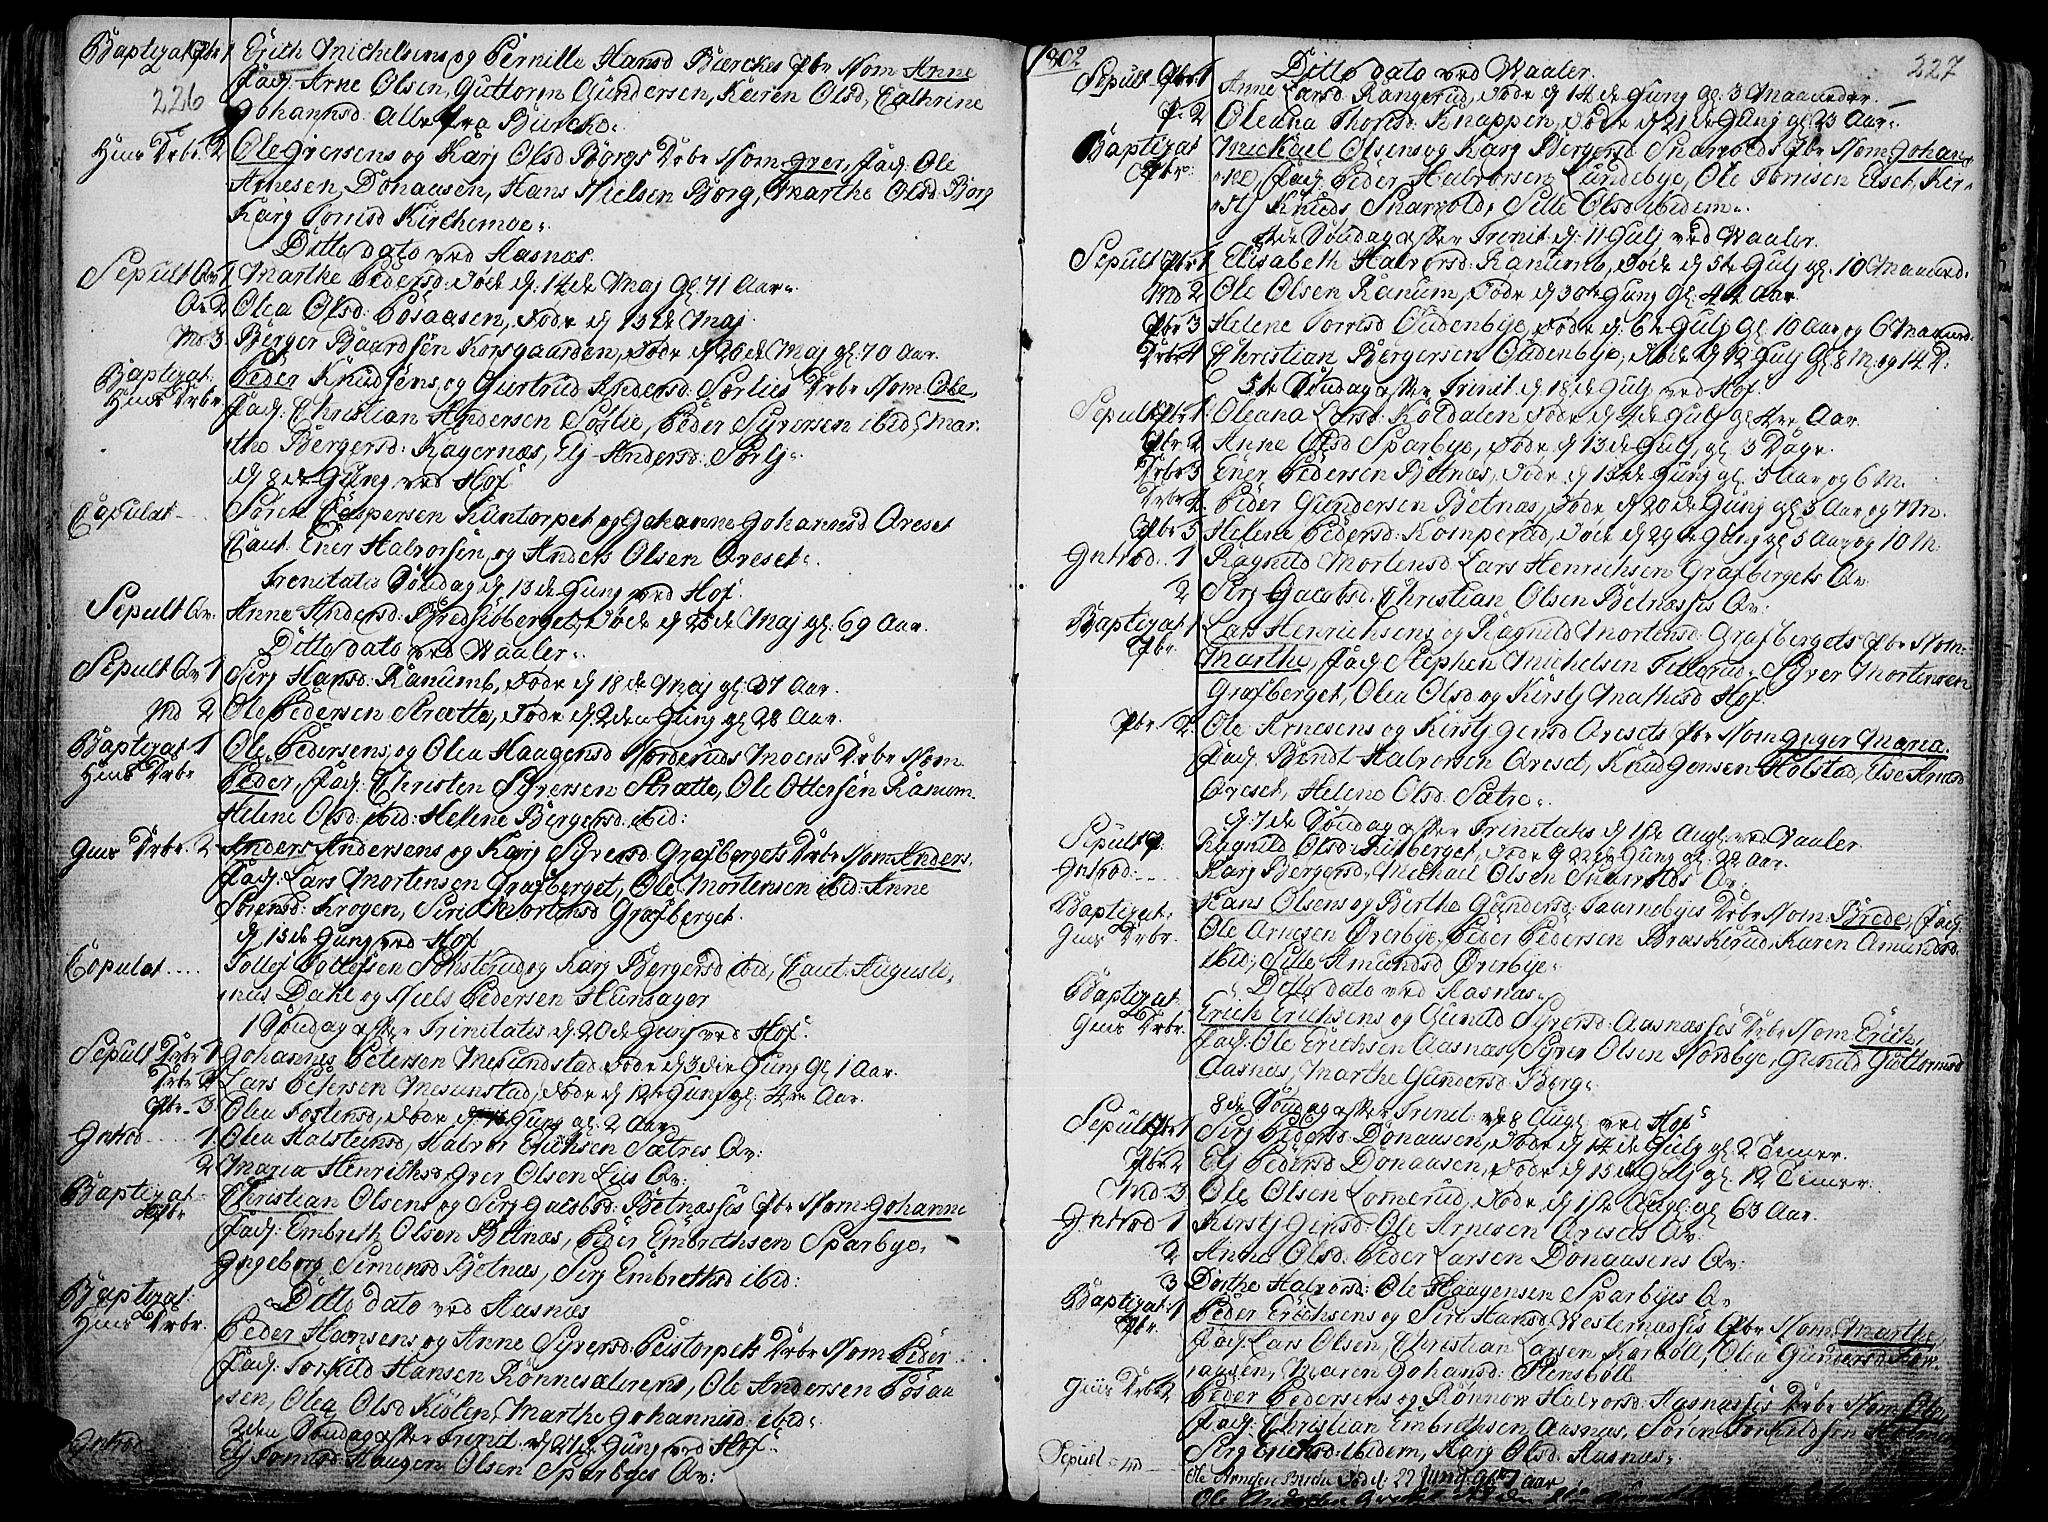 Baptizat Pbr 1 Erich Michelsens og Pernille Hansd Bierckes Pbr Nom: Anne
226 Fad: Arne Olsen, Guttorm Gundersen, Karen Olsd, Cathrine
Johannsd: Alle fra Bircke.
Hius Drbr. 2 Ole Iversens og Karj Olsd Borgs Drbr Nom: Iver, Fad: Ole
Arnesen Donaasen, Hans Nielsen Borg, Marthe Olsd: Borg
Karj Tomsd Kirchemoe.
Ditto dato ved Aasnæs.
Sepult Qv 1 Marthe Pedersd: Døde d: 14de Maj gl: 71 Aar.
Qv. 2 Olea Olsd: Posaasen, Døde d 13de Maj
Md. 3 Berger Baardsen Korsgaarden, Døde d 26de Maj gl: 70 Aar.
Baptizat Peder Knudsens og Gurtrud Andersd: Sørlies Drbr Nom: Ole,
Hius Drbr. Fad: Christian Andersen Sørlie, Peder Syversen ibid, Mar-
the Bergersd: Kagernæs, Elj Andersd: Sørlj.
d 8de Junj ved Hof
Copulat Søren Caspersen Kuntorpet og Johanne Johannsd Areset
Caut: Ener Halvorsen og Anders Olsen Areset.
Trinitatis Søndag d 13de Junj ved Hof.
Sepult Qv. Anne Andersd: Døde d 26de Maj gl: 69 Aar.
Ditto dato ved Waaler.
Sepult Qv 1 Serj Hansd: Ranumb, Døde d 18de Maj gl: 37 Aar.
Md 2 Ole Pedersen Strætte, Døde d 2den Junj gl 28 Aar.
Baptizat 1 Ole Pedersens og Olea Haagensd Norderuds Moens Drbr Nom.
Hius Drbr Peder, Fad: Christen Syversen Strætte, Ole Ottersen Ranum
Helene Olsd: ibid: Hellene Bergersd: ibid:
Jius Drbr. 2 Anders Andersens og Karj Syversd: Grafbergets Drbr Nom: Anders,
Fad: Lars Mortensen Grafberget, Ole Mortensen ibid: Anne
Sørensd: Krogen, Siri Mortensd Grafberget.
d 15de Junj ved Hof
Copulat Tollef Tollefsen Sønsterud og Karj Bergersd ibid, Caut: Augusti-
nus Dahl og Niels Pedersen Hunsager
1 Søndag efter Trinitatis d 20de Junj ved Hof.
Sepult Drbr 1 Johannes Petersen Mesundstad Døde d 3die Junj gl 1 Aar.
Drbr 2 Lars Petersen Mesunstad, Døde d 12te Junj gl: 4re Aar.
Pbr. 3 Olea Tostensd, Døde d Junj gl: 2 Aar.
Introd. 1. Olea Halsteinsd, Halvor Erichsen Sætres Qv:
2 Maria Henrichsd, Iver Olsen Lies Qv:
Baptizat Christian Olsens og Serj Jacobsd: Bøtnæssis Pbr Nom: Johanne
Pbr Fad: Embreth Olsen Bøtnæs, Peder Embrethsen Sparbye,
Ingeborg Simensd Bøtnæs, Serj Embrethsd ibid:
Baptizat: Ditto dato ved Aasnæs
Hius Drbr. Peder Hansens og Anne Syversd: Peistorpets Drbr Nom: Peder
Fad: Torkild Hansen Rønnesæterens, Ole Andersen Posaa-
sen, Olea Olsd Kiølen, Marthe Johannsd: ibid.
2den Søndag efter Trinit: d 27de Junj ved Hof
Introd. Elj Tomesd: Haagen Olsen Sparbyes Qv:
1802 227
Ditto dato ved Waaler.
Sepult Pbr 1 Anne Larsd: Rangerud, Døde d 14de Junj gl: 3 Maaneder.
P. 2 Oleana Thorsd: Knappen, Døde d 21de Junj gl: 23 Aar.
Baptizat Mickael Olsens og Karj Bergersd Snarvolds Pbr Nom: Johan-
Pbr: ne, Fad: Peder Halvorsen Lundebye, Ole Tomsen Elset, Ker-
stj Knuds Snarvold, Sille Olsd ibidem.
4de Søndag efter Trinit: d: 11 Julj ved Waaler.
Sepult Pbr 1 Elisabeth Halvorsd: Ranumb, Døde d 5te Julj gl: 10 Maaned.
Md 2 Ole Olsen Ranum, Døde d 30te Junj gl 44 Aar.
Pbr 3 Helene Tomsd Oudenbye, Døde d: 6te Julj gl 10 Aar og 6 Maaned.
Drbr 4 Christian Bergersen Oudenbye, Døde d 12 Julj gl 8 M: og 14 D:
5te Søndag efter Trinit d 18de Julj ved Hof
Sepult Pbr 1. Oleana Larsd: Koldalen Døde d 4de Julj gl 4re Aar.
Pbr 2 Anne Olsd Sparbye, Døde d 13de Julj gl 3 Dage.
Drbr 3 Ener Pedersen Bøtnæs, Døde d 15de Junj gl. 3 Aar og 6 M.
Drbr 4. Peder Gundersen Bøtnæs, Døde d 20de Junj gl 3 Aar og 7 M.
Pbr 5 Helene Pedersd: Komperud, Døde d 29de Junj gl 5 Aar og 10 M:
Introd. 1 Ragnild Mortensd: Lars Henrichsen Grafbergets Qv.
2 Serj Jacobsd: Christian Olsen Bøtnæssis Qv:
Baptizat 1 Lars Henrichsens og Ragnild Mortensd: Grafbergets Pbr Nom:
Pbr. Marthe, Fad: Stephen Michelsen Tellerud, Syver Mortensen
Grafberget, Olea Olsd og Kirstj Mathisd Hof.
Pbr 2. Ole Arnesens og Kirstj Jensd Aresets Pbr Nom: Inger Maria.
Fad: Berndt Halvorsen Areset, Knud Jensen Holstad, Else
Areset, Helene Olsd: Sætre.
d: 7de Søndag efter Trinitatis d 1ste Aug: ved Waaler.
Sepult P. Ragnild Olsd: Døde d 22de Junj gl: 22 Aar.
Introd: Karj Bergersd, Michael Olsen Snarvolds Qv.
Baptizat Hans Olsens og Birthe Gundersd: Taarnebyes Drbr Nom: Brede, Fad:
Jius Drbr. Ole Arnesen Øverbye, Peder Pedersen Braskerud, Karen Amundsd:
ibid, Sille Amundsd Øverbye.
Baptizat Ditto dato ved Aasnæs.
Jius Drbr. Erich Erichsens og Gunild Syversd: Aasnæssis Drbr Nom: Erich,
Fad: Ole Erichsen Aasnæs, Syver Olsen Nordbye, Gunild Guttormsd
Aasnæs, Marthe Gundersd: Berg.
8de Søndag efter Trinit: d 8 Aug: ved Hof
Sepult Pbr 1 Serj Pedersd: Donaasen, Døde d 14de Julj gl 2 Timer.
Pbr 2 Elj Pedersd Donaasen, Døde d 15de Julj gl 12 Timer.
Md. 3 Ole Olsen Lomerud, Døde d 1ste Aug: gl 63 Aar.
Introd 1 Kerstj Jensd: Ole Arnesen Aresets Qv.
2 Anne Olsd: Peder Larsen Donaasens Qv:
3 Dorthe Halvorsd: Ole Haagensen Sparbyes Qv
Baptizat: 1 Peder Erichsens og Siri Hansd Westernæssis Pbr Nom: Marthe,
Pbr. Fad: Lars Olsen, Christian Larsen Karboll, Olea Gundersd
aasen, Maren Johansd: Flensboll
Jius Drbr 2 Peder Pedersens og Rønnow Halvorsd: Aasnæssis Drbr Nom: Ole,
Fad: Christian Embrethsen Aasnæs, Søren Torkildsen
Serj Erichsd: ibidem, Karj Olsd: Aasnæs.
Sepult Md Ole Arnesen Bircke Død d: 22 Junj gl: 7 Aar